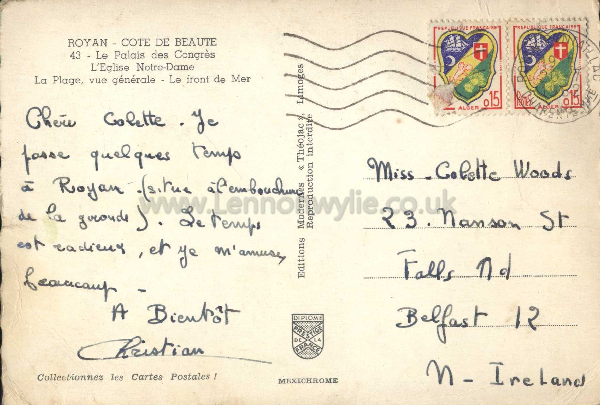 ROYAN - COTE DE BEAUTE
43 - Le Palais des Congrès
L'Eglise Notre-Dame
La Plage, vue générale - Le front de Mer
Chère Colette. Je
passe quelques temps
à Royan (situe à l'embouchure
de la gironde). Le temps
est radieux, et je m'amuse
beaucoup -
A Bientôt
Christian
Collectionnez les Cartes Postales !
Editions Modernes « Théojac », Limoges
Reproduction interdite
DIPLOME
PRESTIGE
DE LA
FRANCE
MEXICHROME
REPUBLIQUE FRANCAISE
ALGER
0,15
REPUBLIQUE FRANCAISE
ALGER
0,15
Miss. Colette Woods
23. Nanson St
Falls Rd
Belfast 12
N- Ireland
www.Lennoxwylie.co.uk